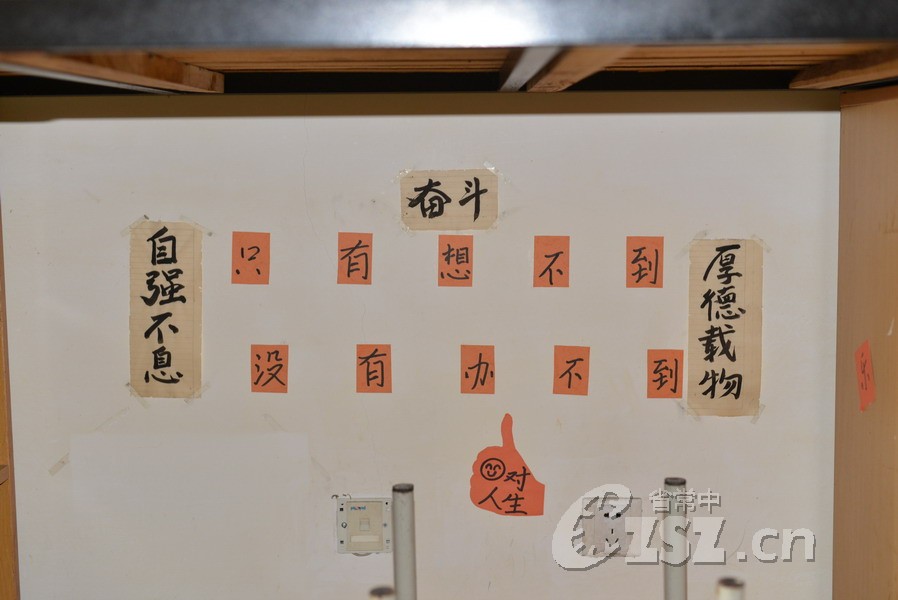 奋斗
自强不息
只有想不到
没有办不到
厚德载物
对
人生
乐
省常中
CZSZ.cn